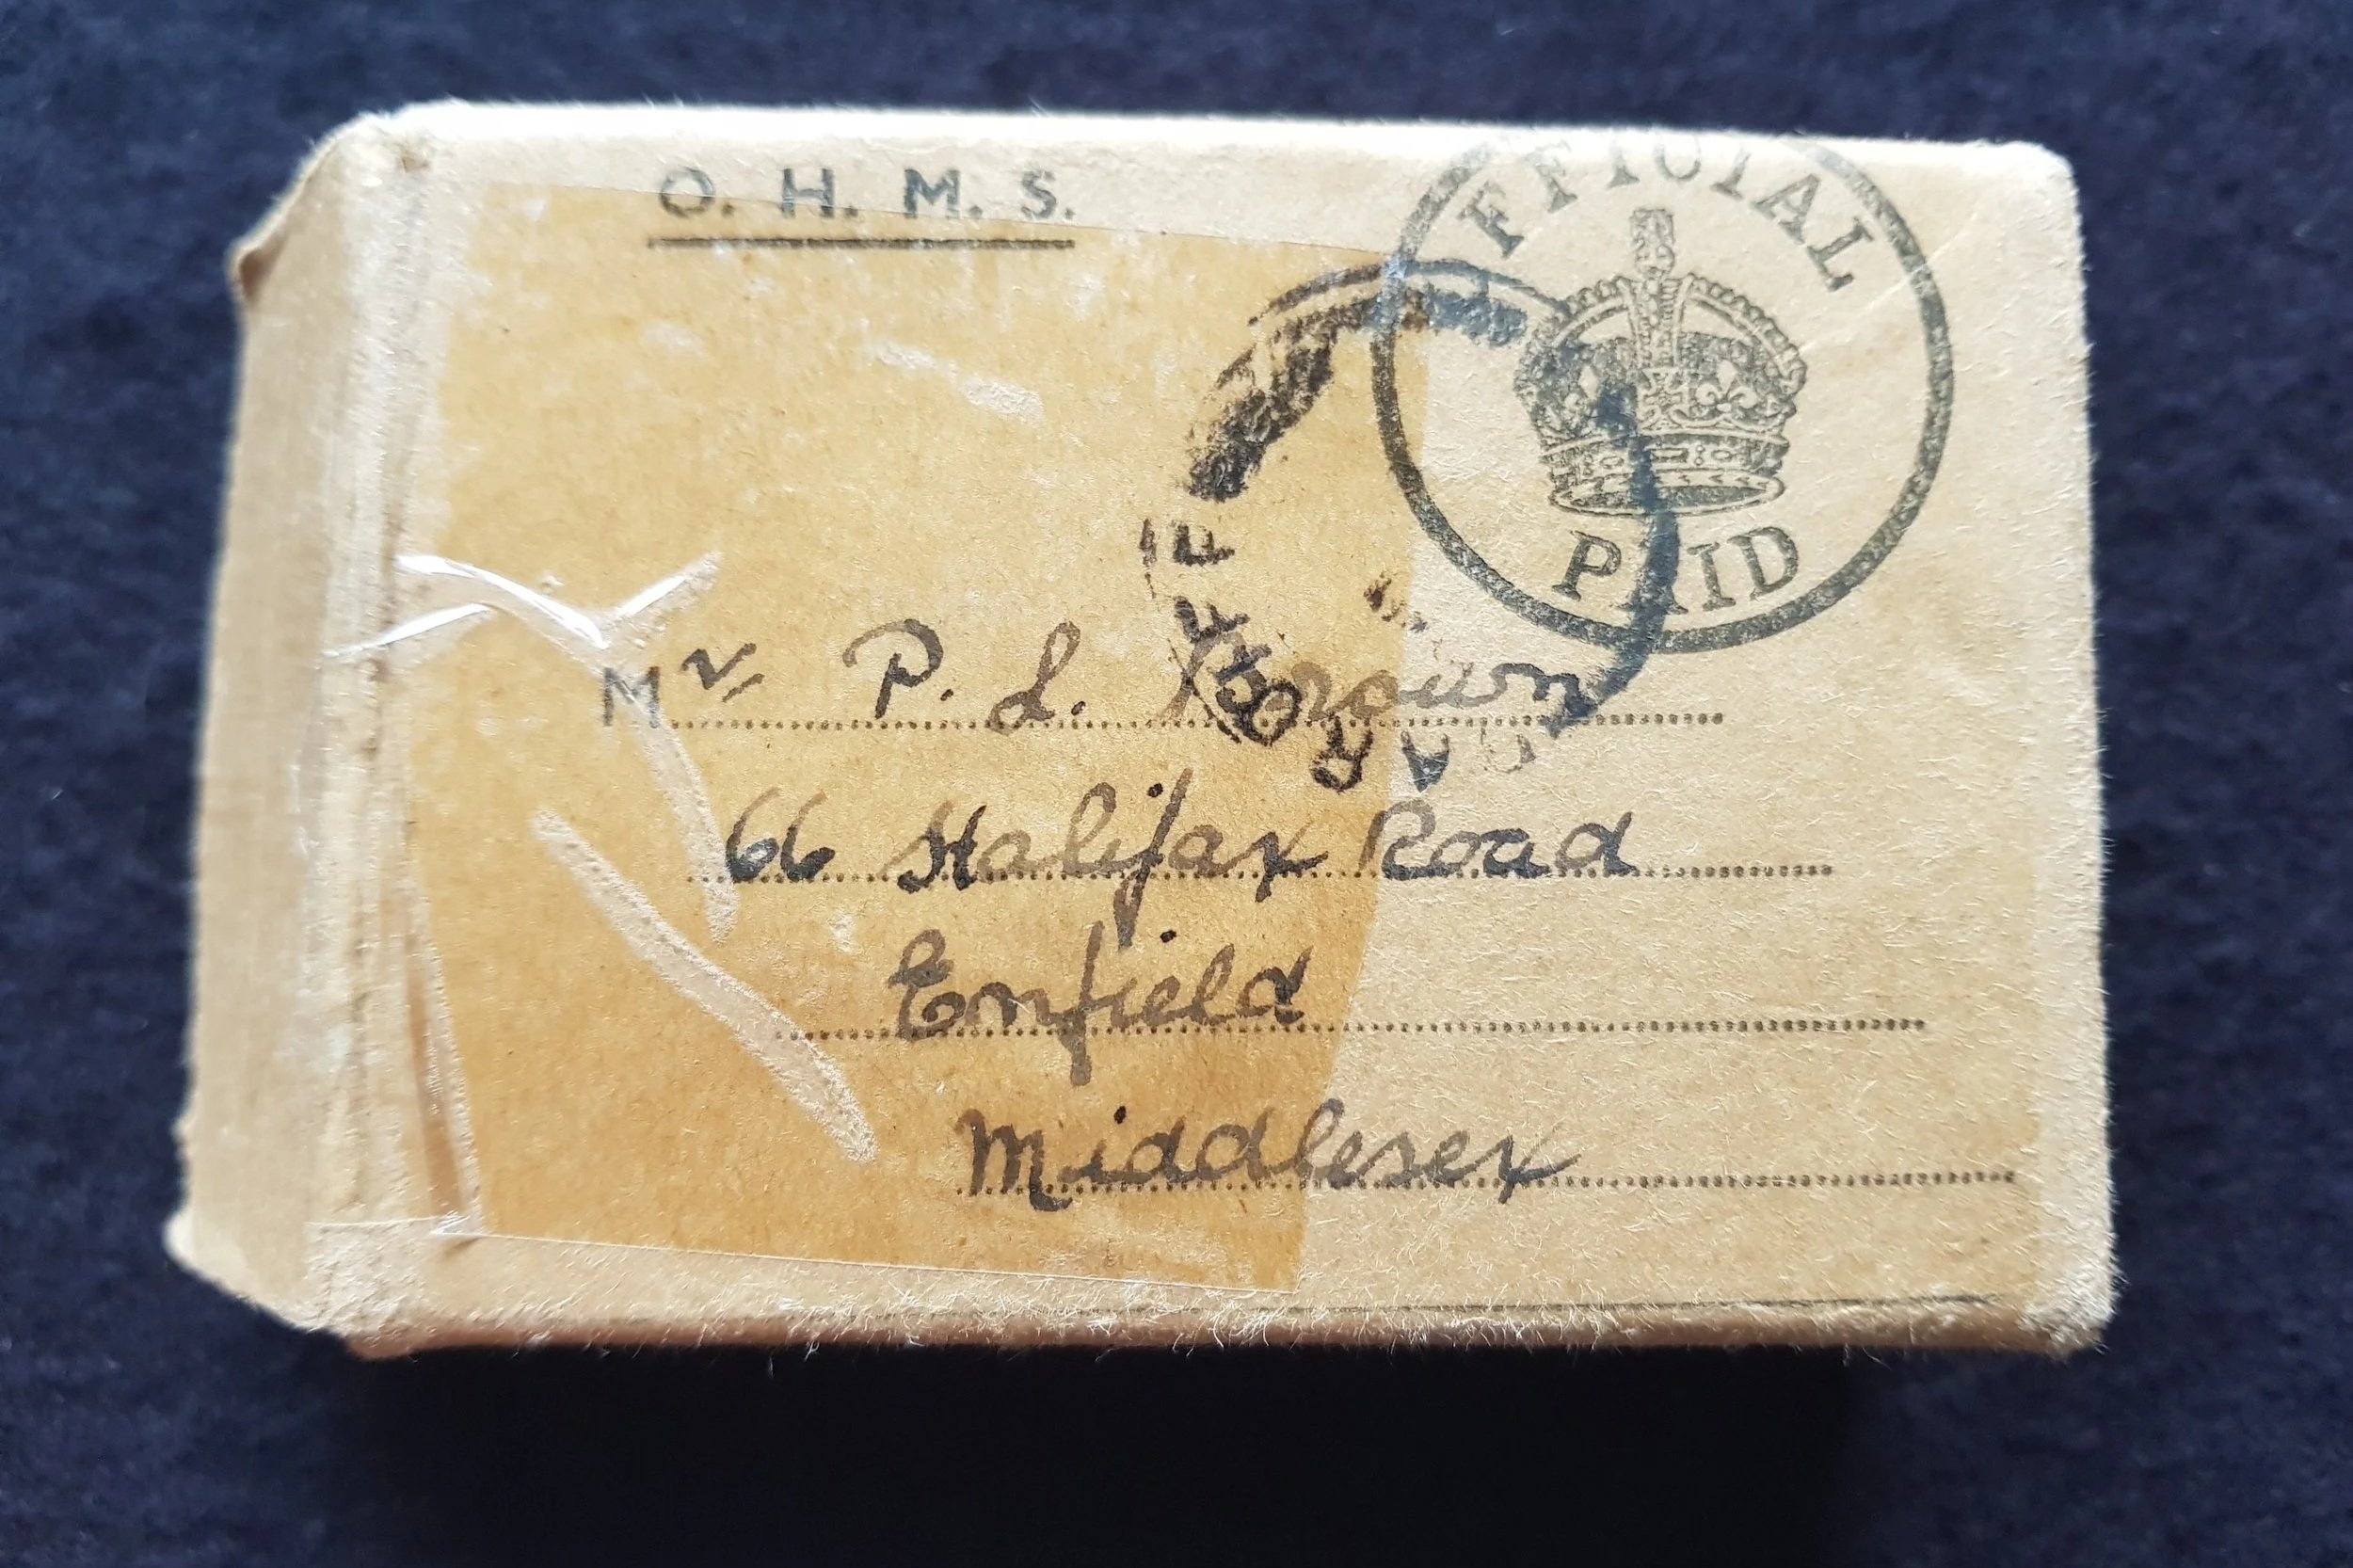 O. H. M. S.
OFFICIAL
PAID
Mr P. L. Brown
66 Halifax Road
Enfield
Middlesex